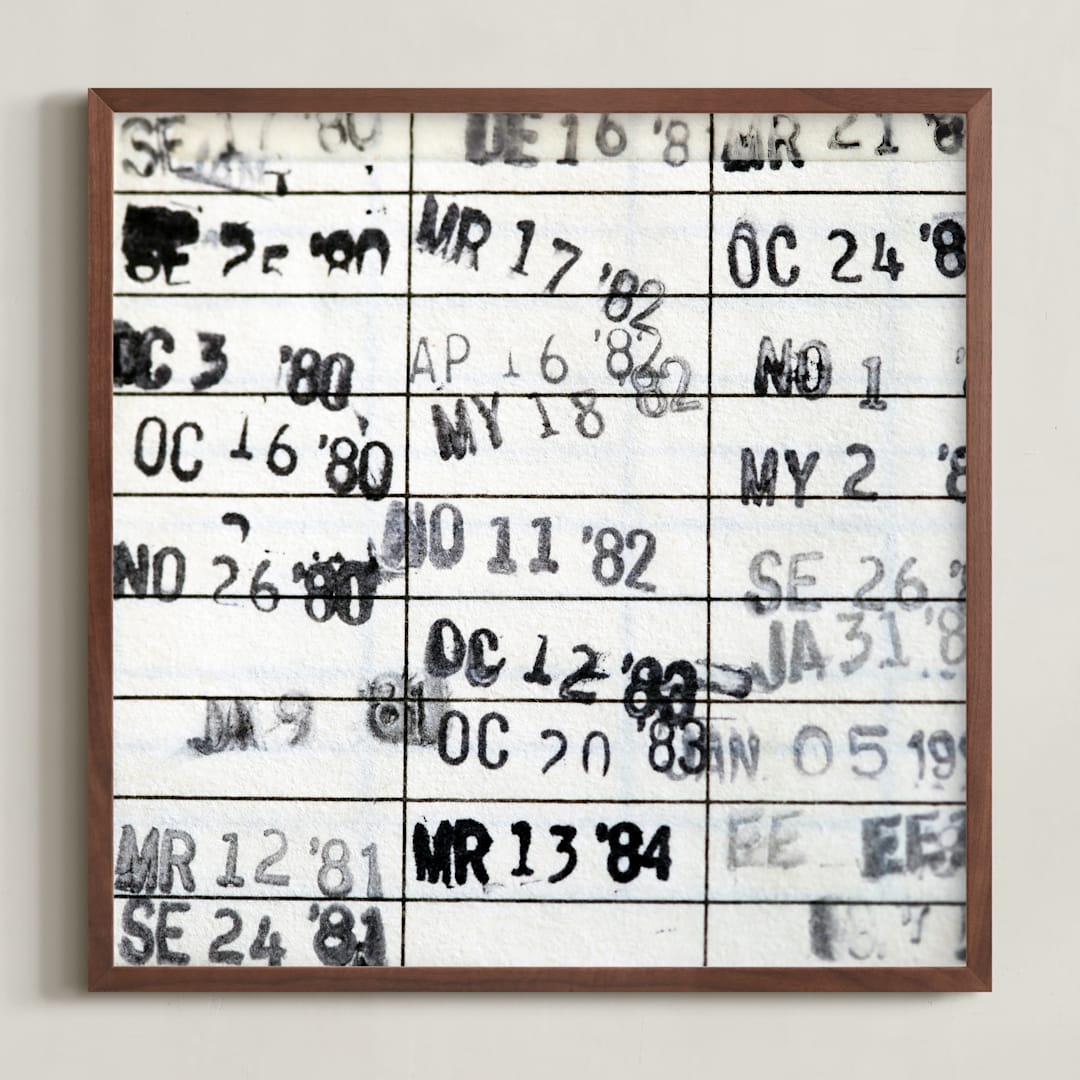 SE 17 '80
SE 25 '80
OC 3 '80
OC 16 '80
NO 26 '80
JA 9 '81
MR 12 '81
SE 24 '81
DE 16 '8
MR 17 '82
AP 16 '82
MY 18 '82
NO 11 '82
OC 12 '83
OC 20 '83
MR 13 '84
MR 21 '8
OC 24 '8
NO 1 '
MY 2 '8
SE 26 '
JA 31 '8
JAN 05 199
EE EE